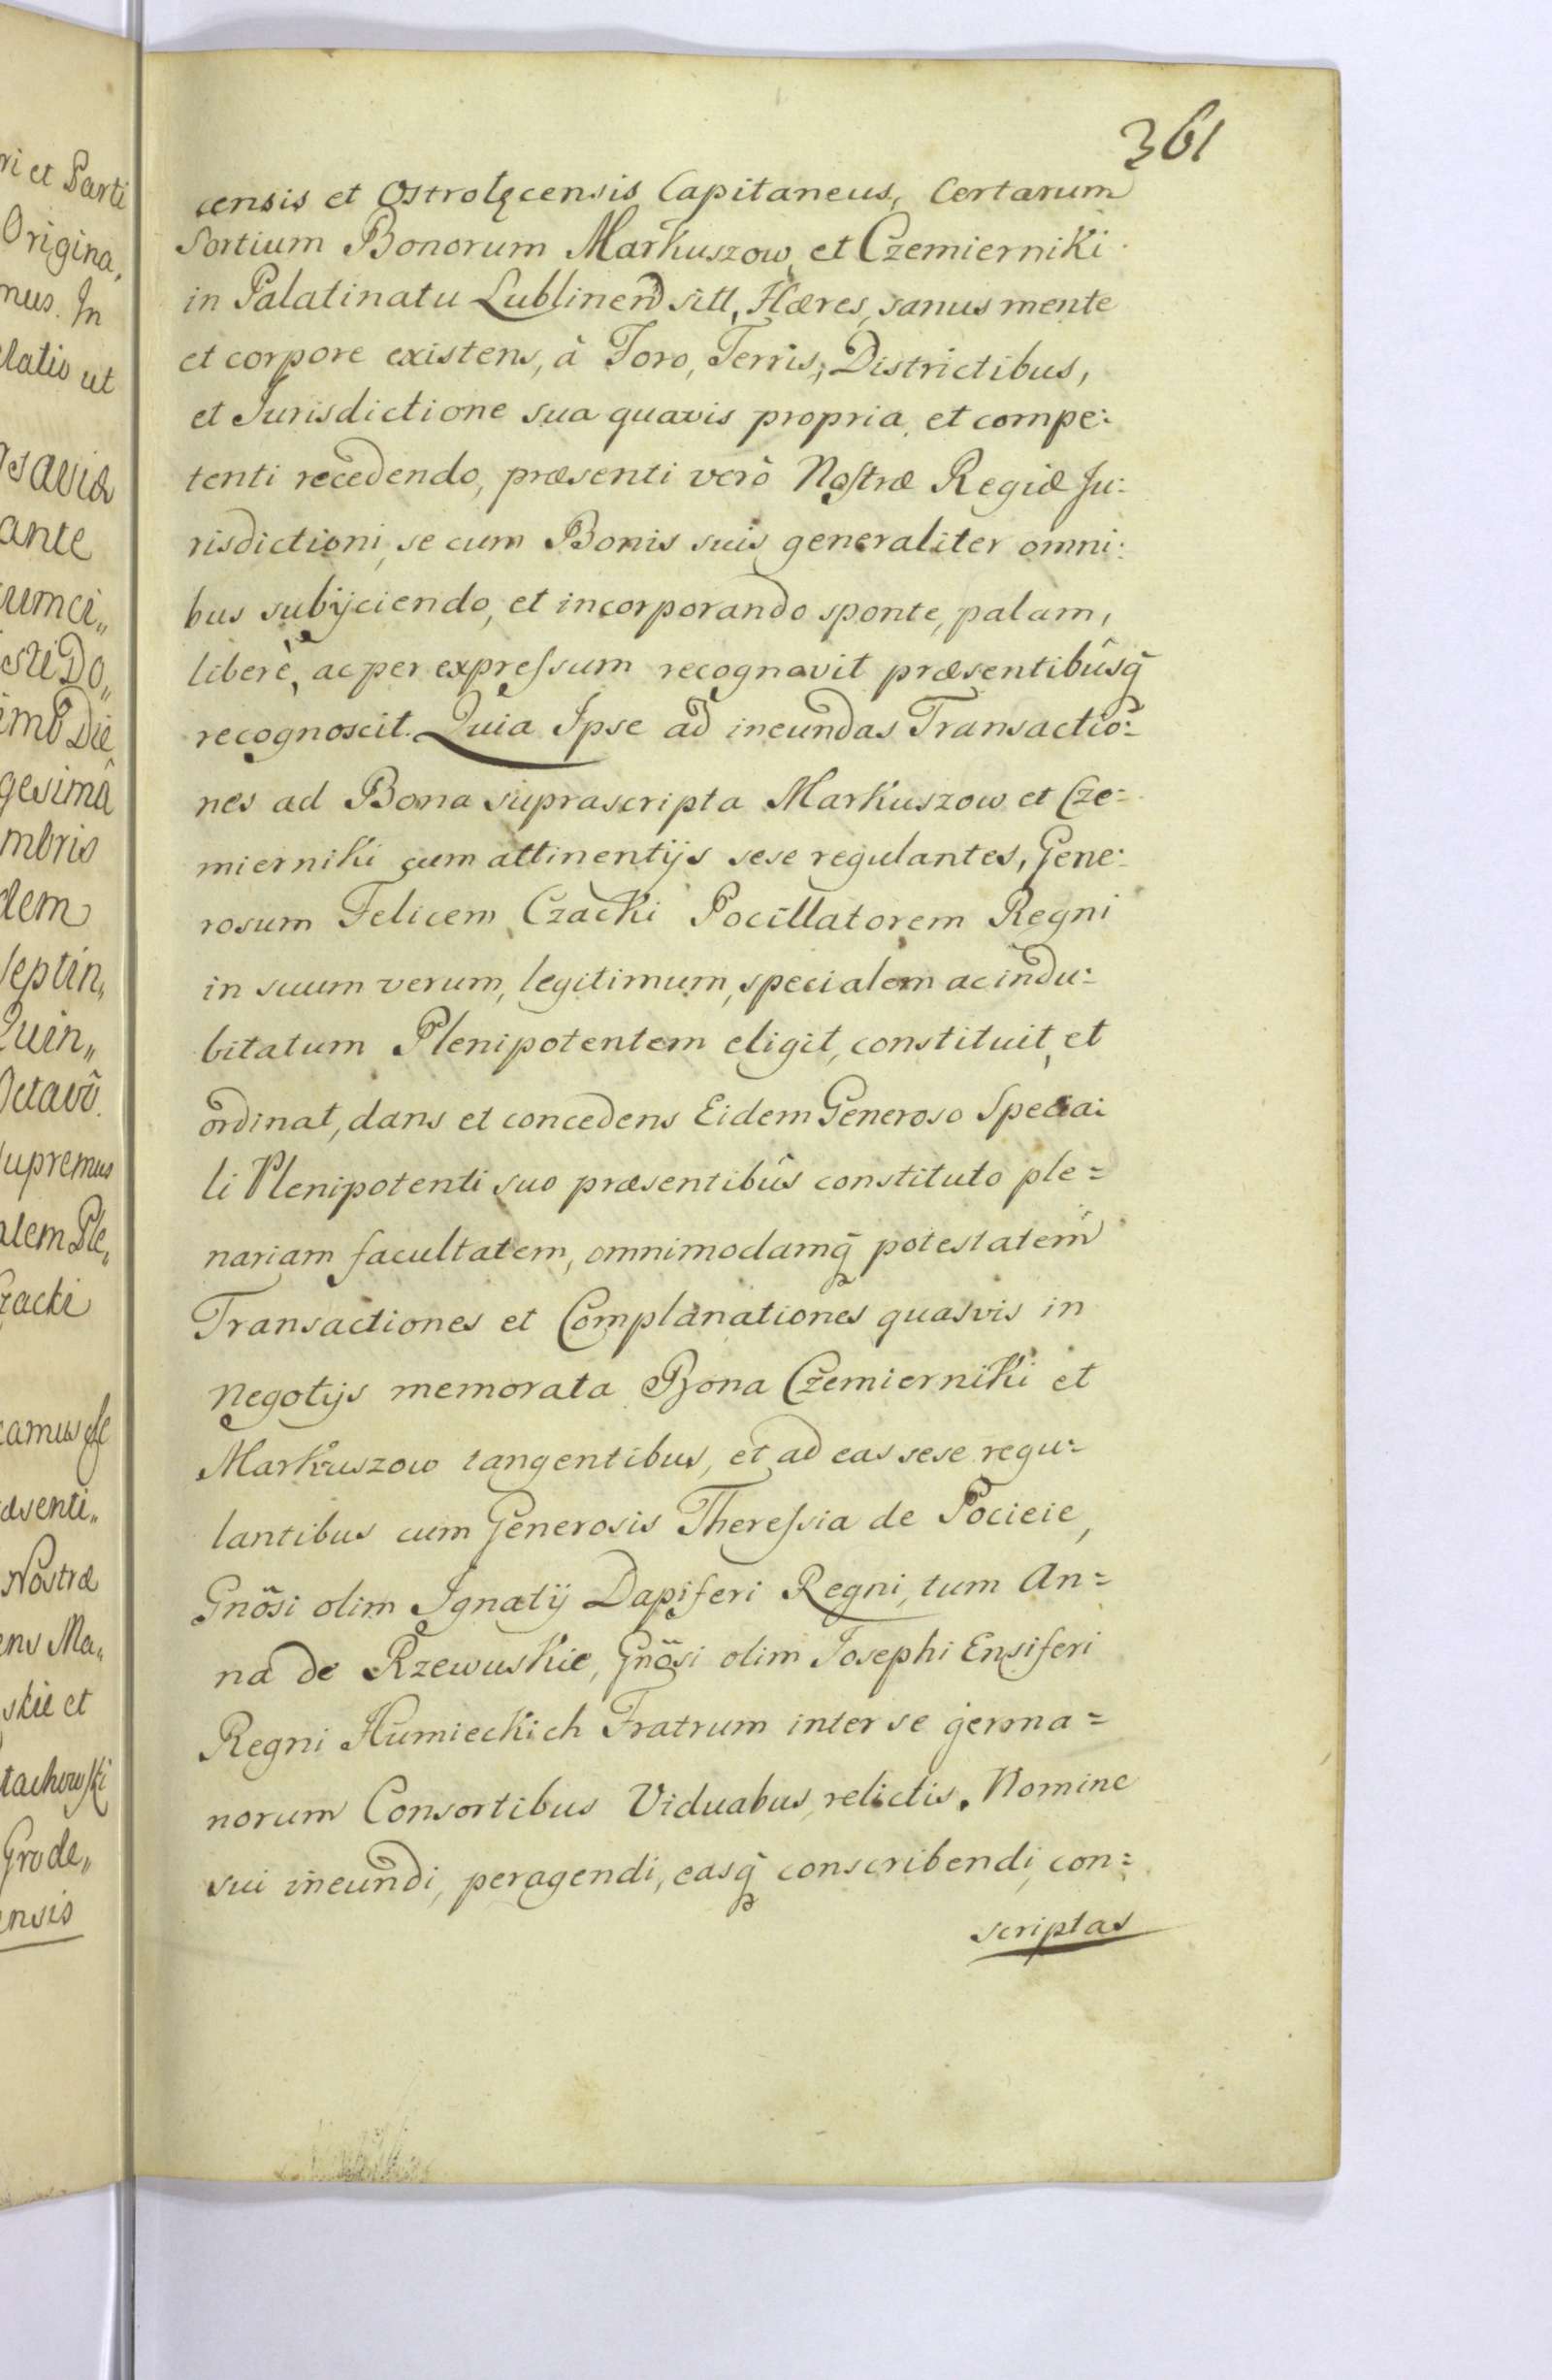 361
censis et Ostrolęcensis Capitaneus, Certarum
Sortium Bonorum Markuszow, et Czemierniki
in Palatinatu Lublinen sitt, Hæres, sanus mente
et corpore existens, à Foro, Terris, Districtibus,
et Jurisdictione sua quavis propria, et compe:
tenti recedendo, præsenti verò Nostræ Regiæ Ju:
risdictioni, se cum Bonis suis generaliter omni:
bus subijciendo, et incorporando sponte, palam,
liberè, ac per expressum recognovit præsentibûsq̃
recognoscit. Quia Ipse ad ineundas Transactio:
nes ad Bona suprascripta Markuszow et Cze:
mierniki cum attinentijs sese regulantes, Gene:
rosum Felicem Czacki Pocillatorem Regni
in suum verum, legitimum, specialem ac indu:
bitatum Plenipotentem eligit, constituit, et
ordinat, dans et concedens Eidem Generoso Specia:
li Plenipotenti suo præsentibûs constituto ple=
nariam facultatem, omnimodamq̃ potestatem
Transactiones et Complanationes quasvis in
Negotijs memorata Bona Czemierniki et
Markuszow tangentibus, et ad eas sese regu:
lantibus cum Generosis Theressia de Pocieie,
Gnõsi olim Ignatij Dapiferi Regni, tum An=
na de Rzewuskie, Gnõsi olim Josephi Ensiferi
Regni Humieckich Fratrum inter se germa=
norum Consortibus Viduabus relictis. Nomine
sui ineundi, peragendi, easq̃ conscribendi, con=
scriptas
ri et Parti
Origina,
mus. In
latio ut
ante
umci,,
imo Die
gesimâ
mbris
dem
septin,
Quin,,
Octavô.
upremus
alem Ple,,
zacki
senti,,
Nostræ
ens Ma,,
skie et
tachowski
Grode,,
ensis